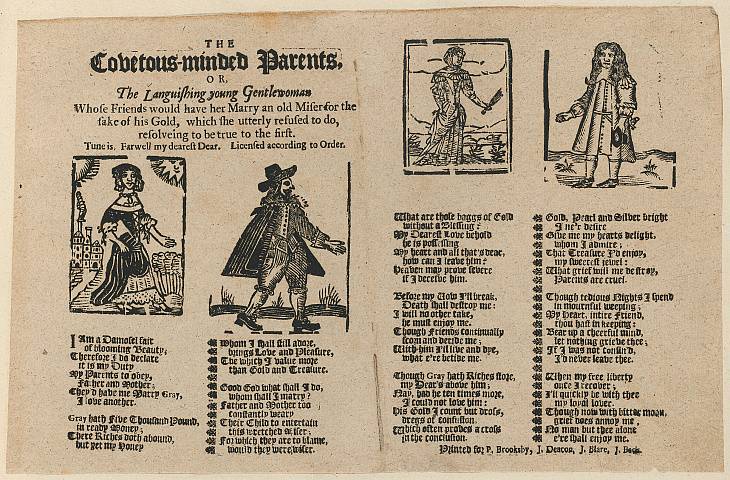 THE
Covetous-minded Parents,
OR,
The Languishing young Gentlewoman
Whose Friends would have her Marry an old Miser for the
sake of his Gold, which she utterly refused to do,
resolveing to be true to the first.
Tune is, Farwell my dearest Dear. Licensed according to Order.
I Am a Damosel fair
of blooming Beauty;
Therefore I do declare
it is my Duty
My Parents to obey,
Father and Mother;
They'd have me Marry Gray,
I love another.
Gray hath Five Thousand Pound,
in ready Money;
There Riches doth abound,
but yet my Honey
Whom I shall still adore,
brings Love and Pleasure,
The which I value more
than Gold and Treasure.
Good God what shall I do,
whom shall I marry?
Father and Mother too
constantly weary
Their Child to entertain
this wretched Miser;
For which they are to blame,
would they were wiser.
What are those baggs of Gold
without a Blessing?
My Dearest Love behold
he is possessing
My heart and all that's dear,
how can I leave him?
Heaven may prove severe
if I deceive him.
Before my Vow I'll break,
Death shall destroy me:
I will no other take,
he must enjoy me.
Though Friends continually
scorn and deride me;
With him I'll live and dye,
what e're betide me.
Though Gray hath Riches store,
my Dear's above him;
Nay, had he ten times more,
I could not love him:
His Gold I count but dross,
dregs of confusion,
Which often proves a cross
in the conclusion.
Gold, Pearl and Silver bright
I ne'r desire
Give me my hearts delight,
whom I admire;
That Treasure I'd enjoy,
my sweetest jewel:
What grief will me destroy,
Parents are cruel.
Though tedious Nights I spend
in mournful weeping;
My Heart, intire Friend,
thou hast in keeping:
Bear up a cheerful mind,
let nothing grieve thee;
If I was not confin'd,
I'd never leave thee.
When my free liberty
once I recover;
I'll quickly be with thee
my loyal lover.
Though now with bitter moan,
grief does annoy me,
No man but thee alone
e're shall enjoy me.
Printed for P. Brooksby, J. Deacon, J. Blare, J. Back.